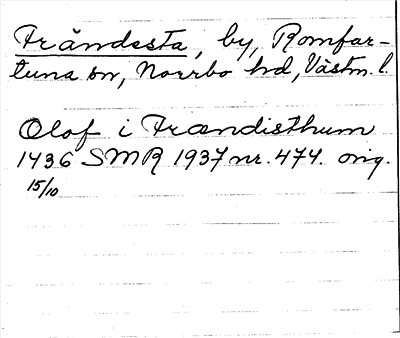 Frändesta, by, Romfar-
tuna sn, Norrbo hd, Västm. l.
Olof i Frændisthum
1436 SMR 1937 nr. 474. orig.
15/10